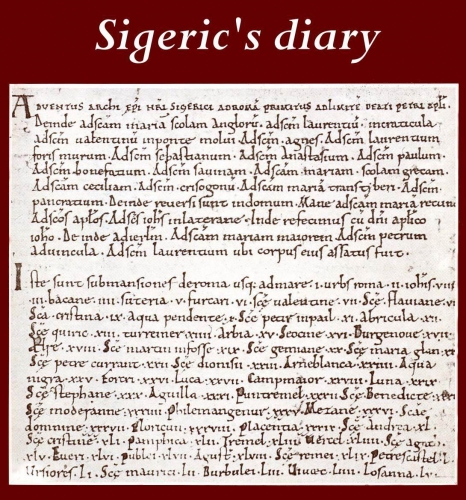 Sigeric's diary
ADVENTUS ARCHI EPI NRI SIGERICI ADROMA PRIMITUS ADLIMITE BEATI PETRI APLI.
Deinde adscam maria scolam angloru. adscm laurentiu. incraticula
adscm ualentinu inponte molui. Adscm. agnes. Adscm laurentium
foris murum. Adscm sebastianum. Adscm anastasium. Adscm paulum.
Adscm. bonefatium. Adscm sauinam. Adscam mariam. scolam grecam.
Adscam ceciliam. Adscm. crisogonu Adscam maria transtiben. Adscm.
pancratium. Deinde reuersi sunt indomum. Mane adscam maria rotunda
Adscos aplos. Adscs iohs inlaterane. Inde refecimus cu dni aplico
ioho. De inde adierlm. Adscam mariam maiorem Adscm petrum
aduincula. Adscm laurentium ubi corpus eius assatus fuit.
Iste sunt submansiones deroma usq; admare. i. urbs roma. ii. iohis. viiii
iii. bacane. iiii. suteria. v. furcari. vi. sce ualentine. vii. Sce. flauiane. vi
Sca cristina. ix. aqua pendente. x. Sce petir inpail. xi. abricula. xii.
Sce quiric. xiii. turreiner xiiii. arbia. xv. Seocine xvi. Burgenoue. xvii.
xviii. Sce martin infosse. xix. Sce gemiane xx. Sce maria glan. xxi
Sce petre currant xxii. Sce dionisii xxiii. Arneblanca. xxiiii. Aqua
nigra. xxv. Forcri. xxvi. Luca. xxvii. Campmaior. xxviii. Luna. xxix.
Sce stephane. xxx. Aguilla. xxxi. Puntremel. xxxii. Sce benedicte.
Sce moderanne. xxxiiii. Philemangenur. xxxv. Mezane. xxxvi. Scae
domnine. xxxvii. Floricun. xxxviii. placentia. xxxix. Sce andrea. xl.
Sce cristine. xli. pamphica. xlii. Tremel. xliii. Vercel. xliiii. Sce agath.
xlv. Everi. xlvi. publei. xlvii. Agusté. xlviii. Sce remei. xlix. Petrescastel. l.
Ursiores. li. Sce maurici. lii. Burbulei. liii. Vivec. liiii. Losanna. lv.